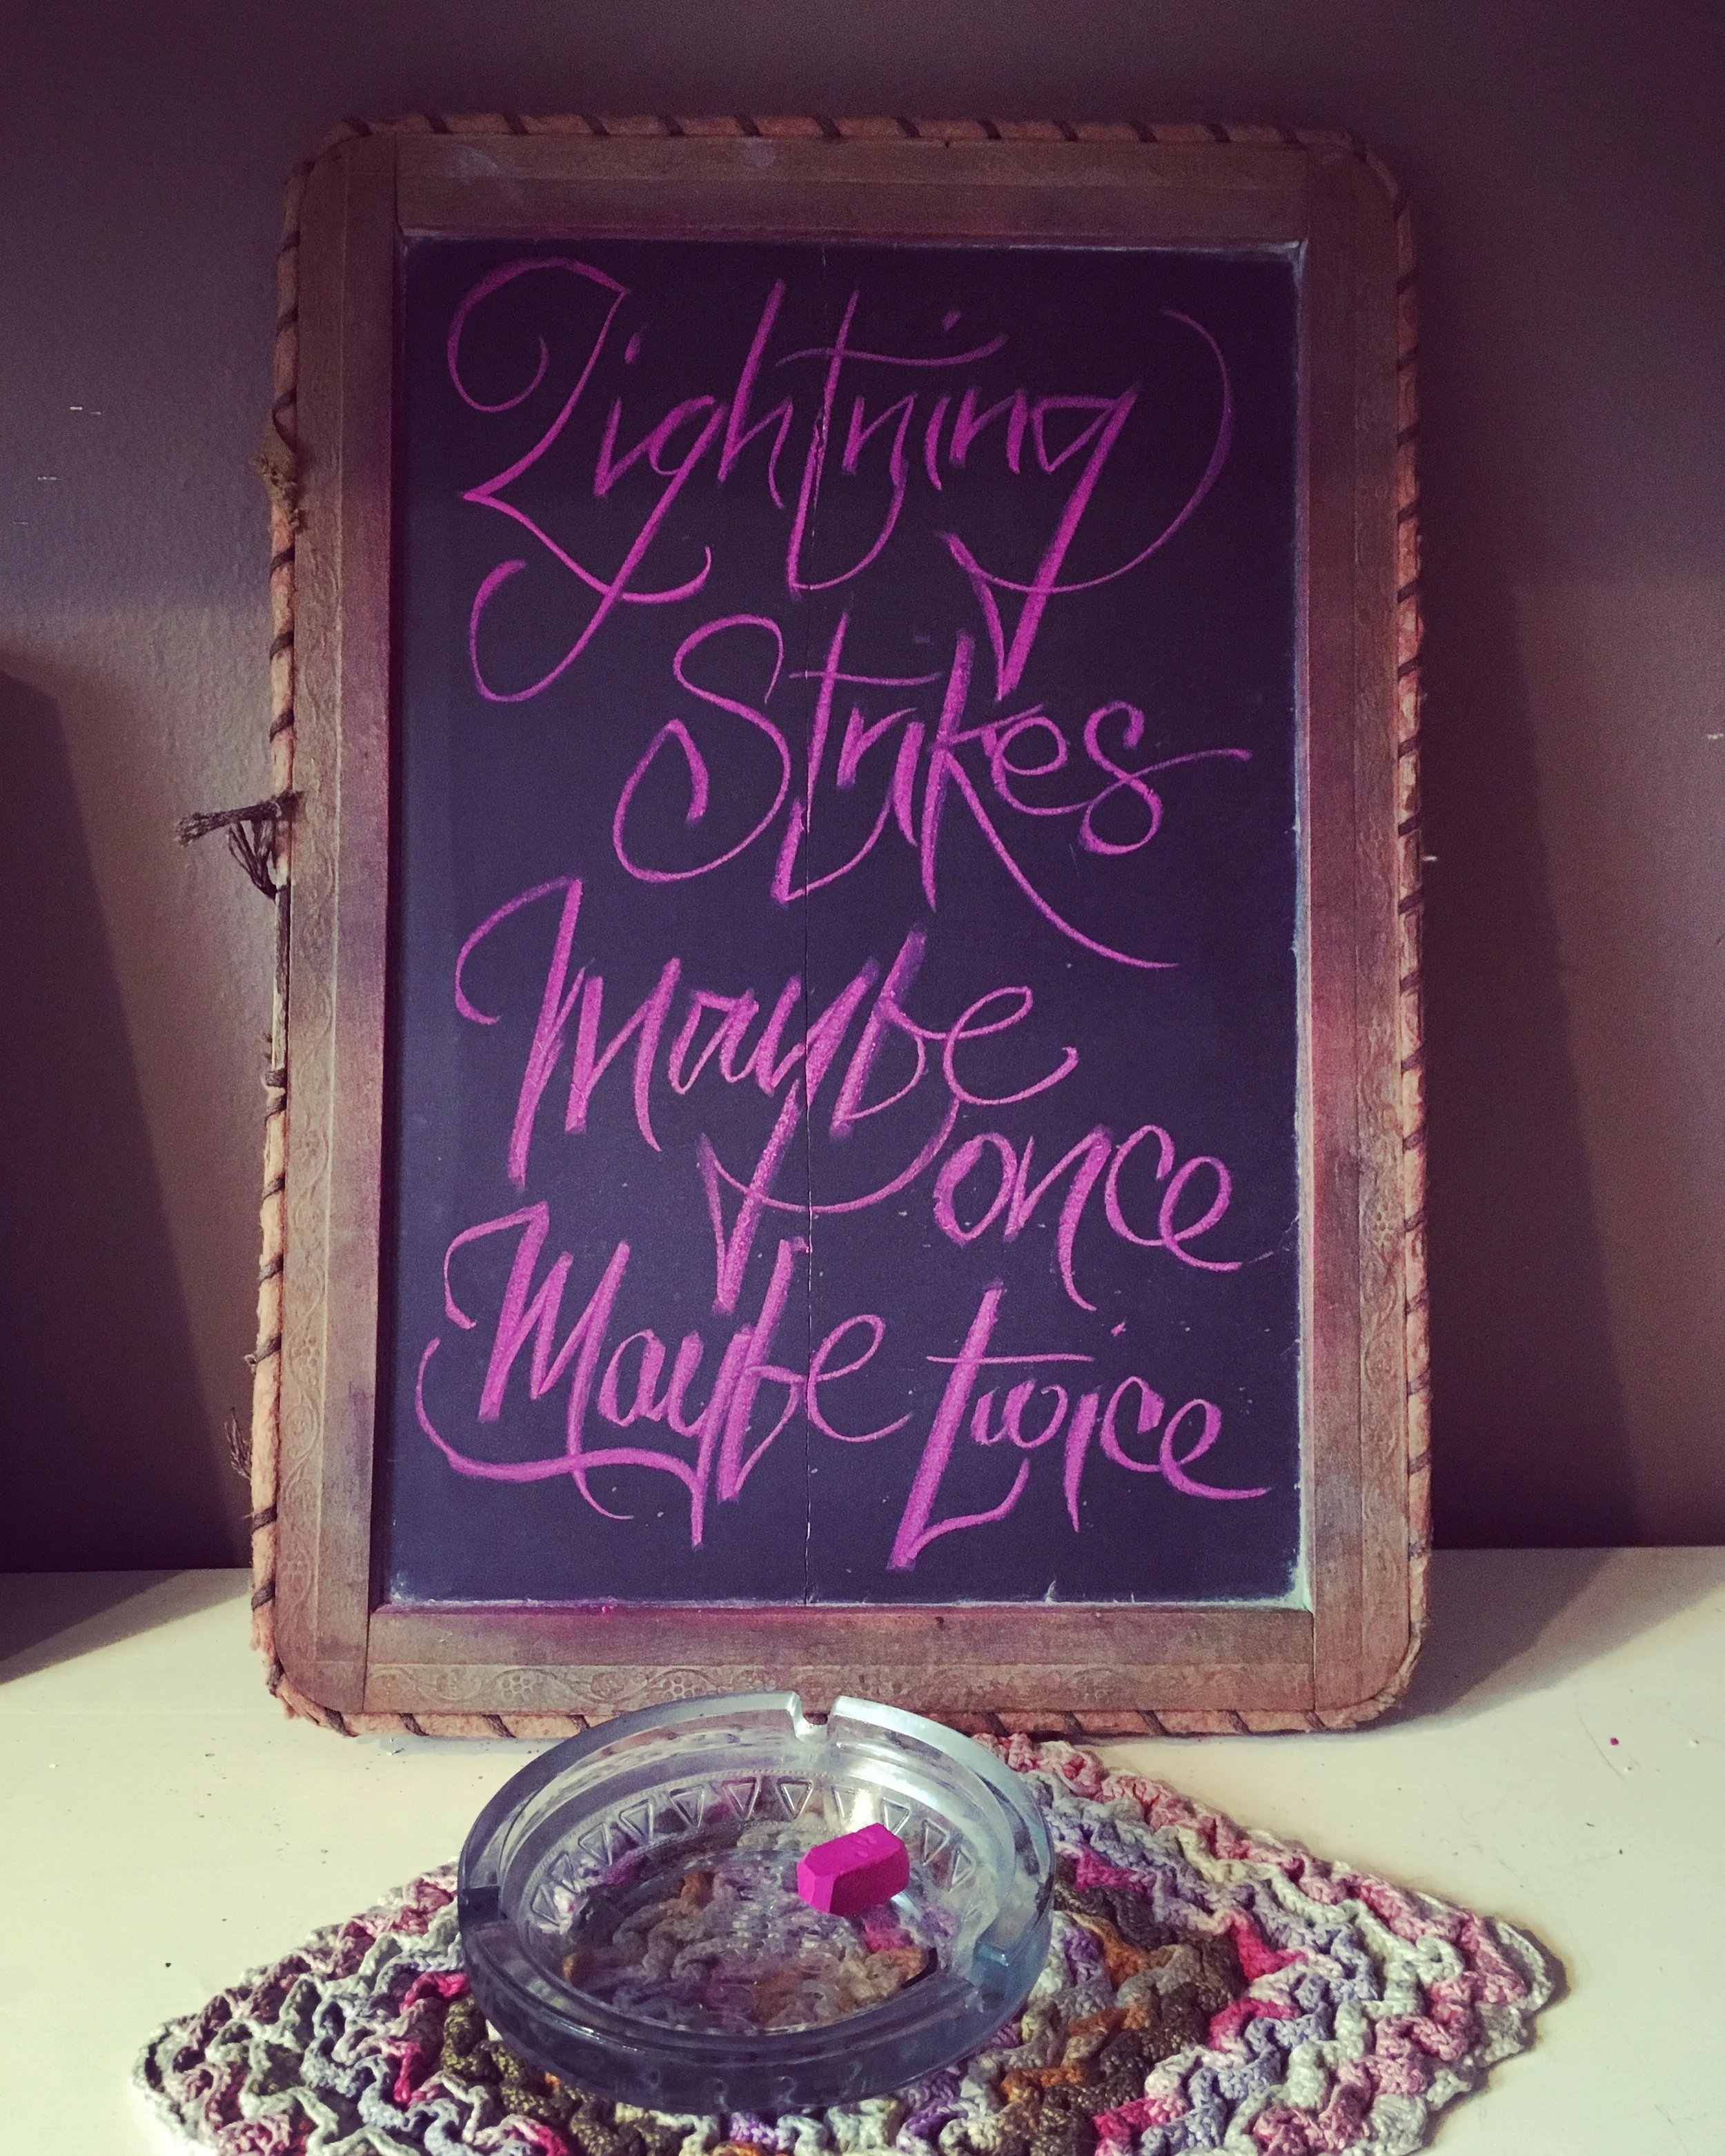 Lightning
Strikes
Maybe
once
Maybe twice